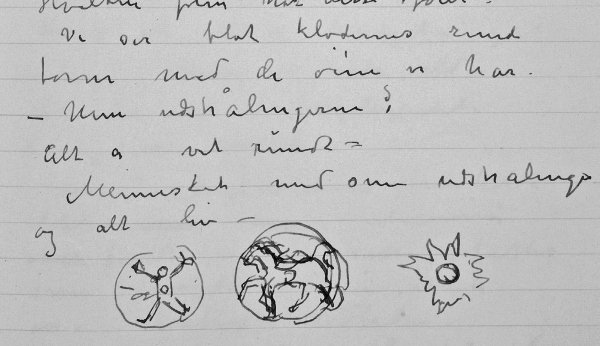 Vi ser blot klodernes runde
form med de øine vi har.
– Kun udstrålingerne?
Alt er vel rundt –
Mennesket med sine udstrålinger
og alt liv –